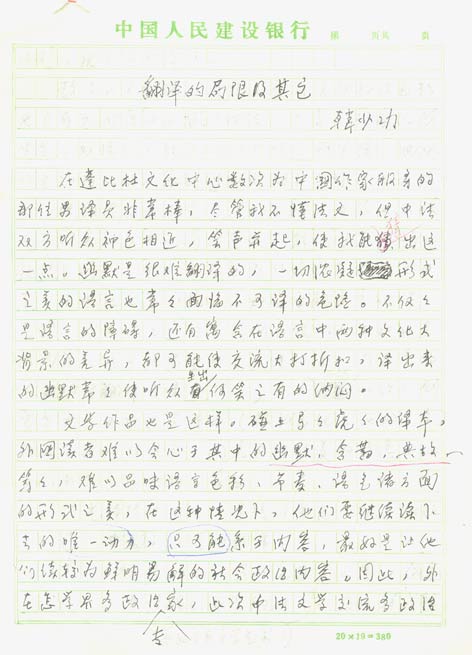 中国人民建设银行
第 页共 页
翻译的局限及其它
韩少功
在蓬比杜文化中心数次为中国作家服务的
那位男译员非常棒，尽管我不懂法文，但中法
双方听众神色相近，笑声齐起，使我能猜出这
一点。幽默是很难翻译的，一切浓凝形式
之美的语言也常常面临不可译的危险。不仅仅
是语言的障碍，还有寓含在语言中两种文化大
背景的差异，都可能使交流大打折扣，译出来
的幽默常常使听众生出何笑之有的纳闷。
文学作品也是这样。碰上马马虎虎的译本，
外国读者难以会心于其中的幽默，含蓄，典故
等等，难以品味语言色彩、节奏、语气诸方面
的形式之美，在这种情况下，他们要继续读下
去的唯一动力，只可能系于内容，最好是让他
们读较为鲜明易解的社会政治内容。因此，外
在怎学界多政治家，此次中法文学交流多政治
专
20×19=380